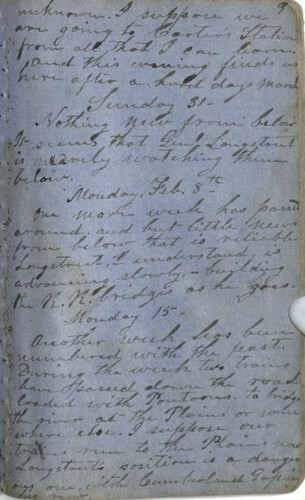 unknown. I suppose we
are going to Carter's Station
from all that I can learn
and this evening finds us
here after a hard days march
Sunday 31-
Nothing new from below
It seems that Genl Longstreet
is merely watching them
below.
Monday, Feb. 8th
One more week has passed
around, and but little news
from below that is reliable
Longstreet, I understand, is
advancing slowly,- building
the R. R. bridges as he goes.
Monday 15-
Another week has been
numbered with the past
During the week two trains
have passed down the road
loaded with Pontoons. To bridge
the river at the Plains or some
where else. I suppose our
trains run to the Plains now
Longstreet's position is a danger
ous one, with Cumberland Gap in